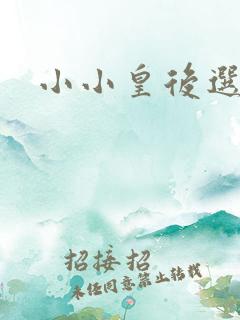 小小皇後選
招接招
未任同意禁止转载